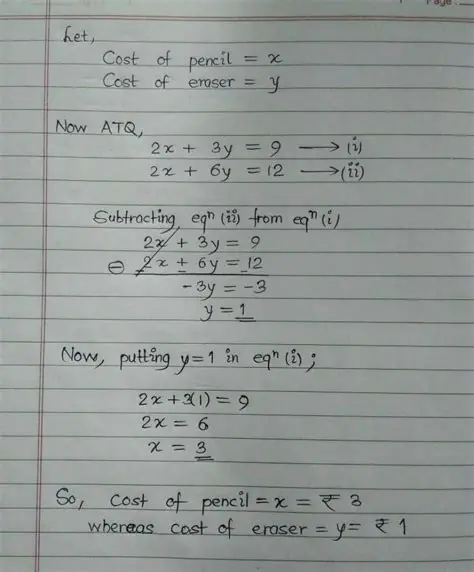 Page:
Let,
Cost of pencil = x
Cost of eraser = y
Now ATQ,
2x + 3y = 9 → (i)
2x + 6y = 12 → (ii)
Subtracting eqⁿ (ii) from eqⁿ (i)
2x + 3y = 9
⊖ 2x ± 6y = 12
-3y = -3
y = 1
Now, putting y=1 in eqⁿ (i) ;
2x + 3(1) = 9
2x = 6
x = 3
So, cost of pencil = x = ₹ 3
whereas cost of eraser = y = ₹ 1